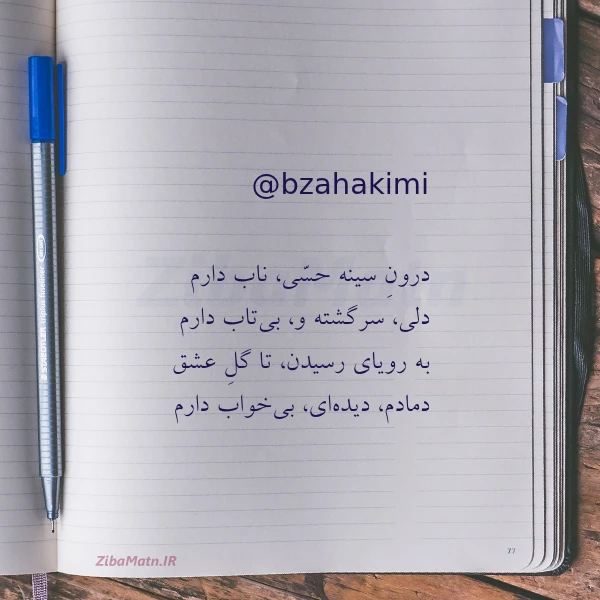 @bzahakimi
درونِ سینه حسّی، ناب دارم
دلی، سرگشته و، بی‌تاب دارم
به رویای رسیدن، تا گلِ عشق
دمادم، دیده‌ای، بی‌خواب دارم
77
ZibaMatn.IR